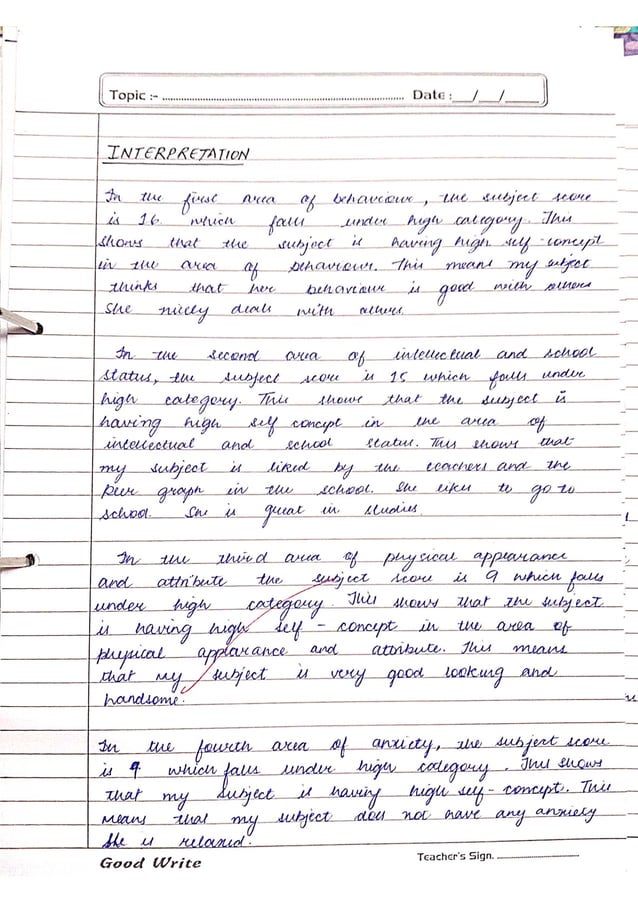 Topic :- ........................ Date : __/__/____
INTERPRETATION
In the first area of behaviour, the subject score
is 16 which falls under high category. This
shows that the subject is having high self-concept
in the area of behaviour. This means my subject
thinks that her behaviour is good with others
She nicely deals with others.
In the second area of intellectual and school
status, the subject score is 15 which falls under
high category. This shows that the subject is
having high self concept in the area of
intellectual and school status. This shows that
my subject is liked by the teachers and the
peer graph in the school. She likes to go to
school. She is great in studies.
In the third area of physical appearance
and attribute the subject score is 9 which falls
under high category. This shows that the subject
is having high self-concept in the area of
physical appearance and attribute. This means
that my subject is very good looking and
handsome.
In the fourth area of anxiety, the subject score
is 9 which falls under high category. This shows
that my subject is having high self-concept. This
means that my subject does not have any anxiety
She is relaxed.
Good Write Teacher's Sign. ........................